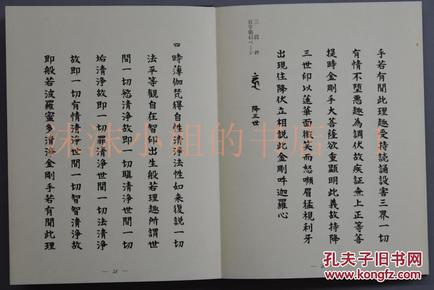 手若有聞此理趣受持讀誦設害三界一切
有情不墮惡趣為調伏故疾證無上正等菩
提時金剛手大菩薩欲重顯明此義故持降
三世印以蓮華面微笑而怒顰眉猛視利牙
出現住降伏立相說此金剛吽迦羅心
降三世
四 時薄伽梵得自性清淨法性如來復說一切
法平等觀自在智印出生般若理趣所謂世
間一切慾清淨故即一切瞋清淨世間一切
垢清淨故即一切罪清淨世間一切法清淨
故即一切有情清淨世間一切智智清淨故
即般若波羅蜜多清淨金剛手若有聞此理
妹妹小姐的书店
孔夫子旧书网